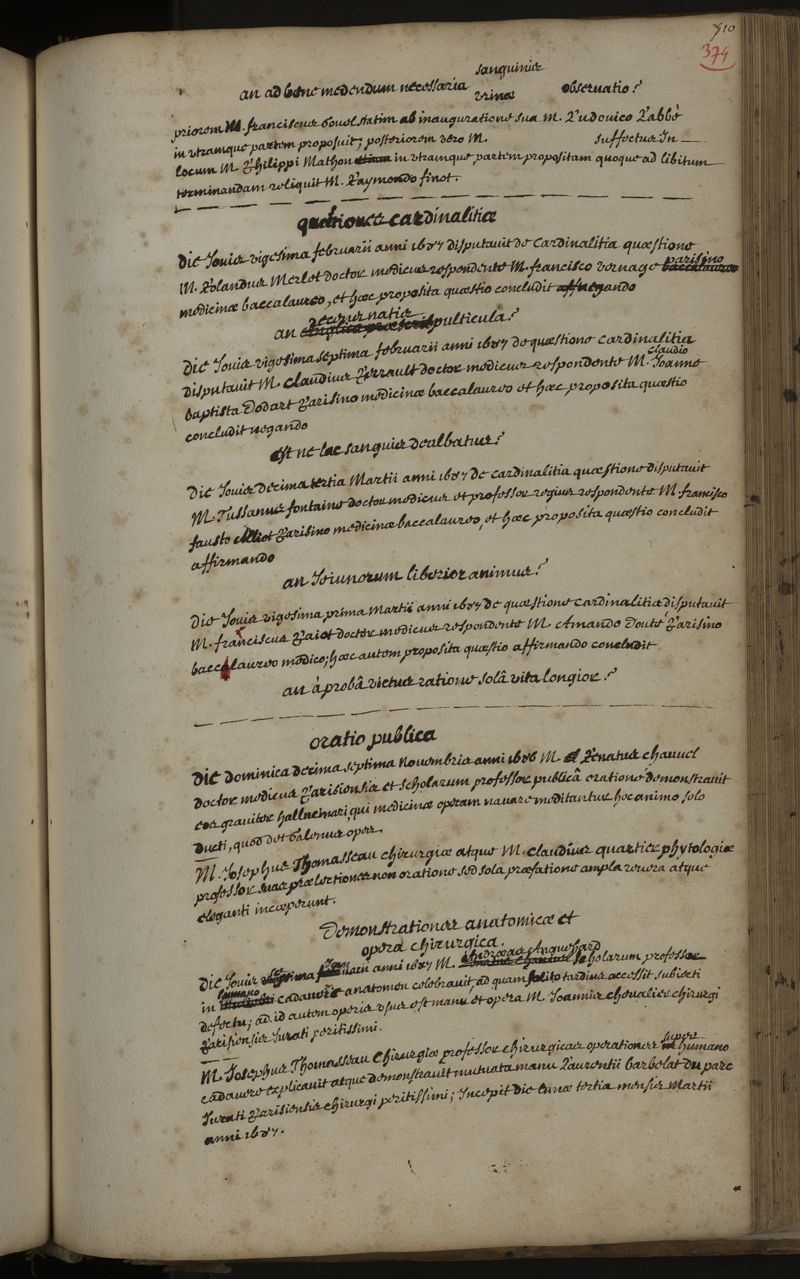 510
374
sanguinis
an ad bene medendum necessaria observatio?
urinæ
priorem M. franciscus bouel statim ab inauguratione sua M. Ludovico Labbé
in utramque partem proposuit; posteriorem vero M. suffectus In
locum M. Philippi Mathon etiam in utramque partem propositam quoque ad libitum
terminandam reliquit M. Raymondo finot.
quæstiones cardinalitiæ
Die Jovis vigesima februarii anni 1687 disputavit de Cardinalitia quæstione
M. Rolandus Merlet doctor medicus respondente M. francisco vernage parisino
medicinæ baccalaureo, et hæc proposita quæstio concludit negando
an pulticula?
Die Jovis vigesima septima februarii anni 1687 de quæstione cardinalitia
disputavit M. Claudius Perrault doctor medicus respondente M. Claudio Joanne
baptista Dodart Parisino medicinæ baccalaureo et hæc proposita quæstio
concludit negando
est ne lac sanguis dealbatus?
Die Jovis decima tertia Martii anni 1687 de cardinalitia quæstione disputavit
M. Tussanus fontaine doctor medicus et professor regius respondente M. francisco
fausto Parisino medicinæ baccalaureo, et hæc proposita quæstio concludit
affirmando
an Jeiunorum liberior animus?
Die Jovis vigesima prima Martii anni 1687 de quæstione cardinalitia disputavit
M. franciscus doctor medicus respondente M. Amando Douté Parisino
baccalaureo medico; hæc autem proposita quæstio affirmando concludit
an à probâ victus ratione solâ vita longior?
oratio publica
Die dominica decima septima Novembris anni 1686 M. Renatus chauvel
doctor medicus Parisiensis et scholarum professor publicâ oratione demonstravit
eos graviter hallucinari, qui medicinæ operam navare meditantur hoc animo solo
ducti, quod det Galenus opes.
M. Josephus Thomasseau chirurgiæ atque M. Claudius quartier phytologiæ
professor suas prælectiones non oratione sed sola præfatione ampla revera atque
eleganti incæperunt.
Demonstrationes anatomicæ et
opera chirurgica.
Die Jovis anni 1687 M. Andreas Enguehard scholarum professor
in humano cadavere anatomen celebravit, ad quam solito tardius accessit subiecti
defectu; ad id autem operis usus est manu et opera M. Joannis chevalier chirurgi
Parisiensis Jurati peritissimi.
M. Josephus Thomasseau Chirurgiæ professor chirurgicas operationes super humano
cadavere explicavit atque demonstravit mutuata manu Laurentii barbelat du parc
Jurati Parisiensis chirurgi peritissimi; Incepit die lunæ tertia mensis Martii
anni 1687.